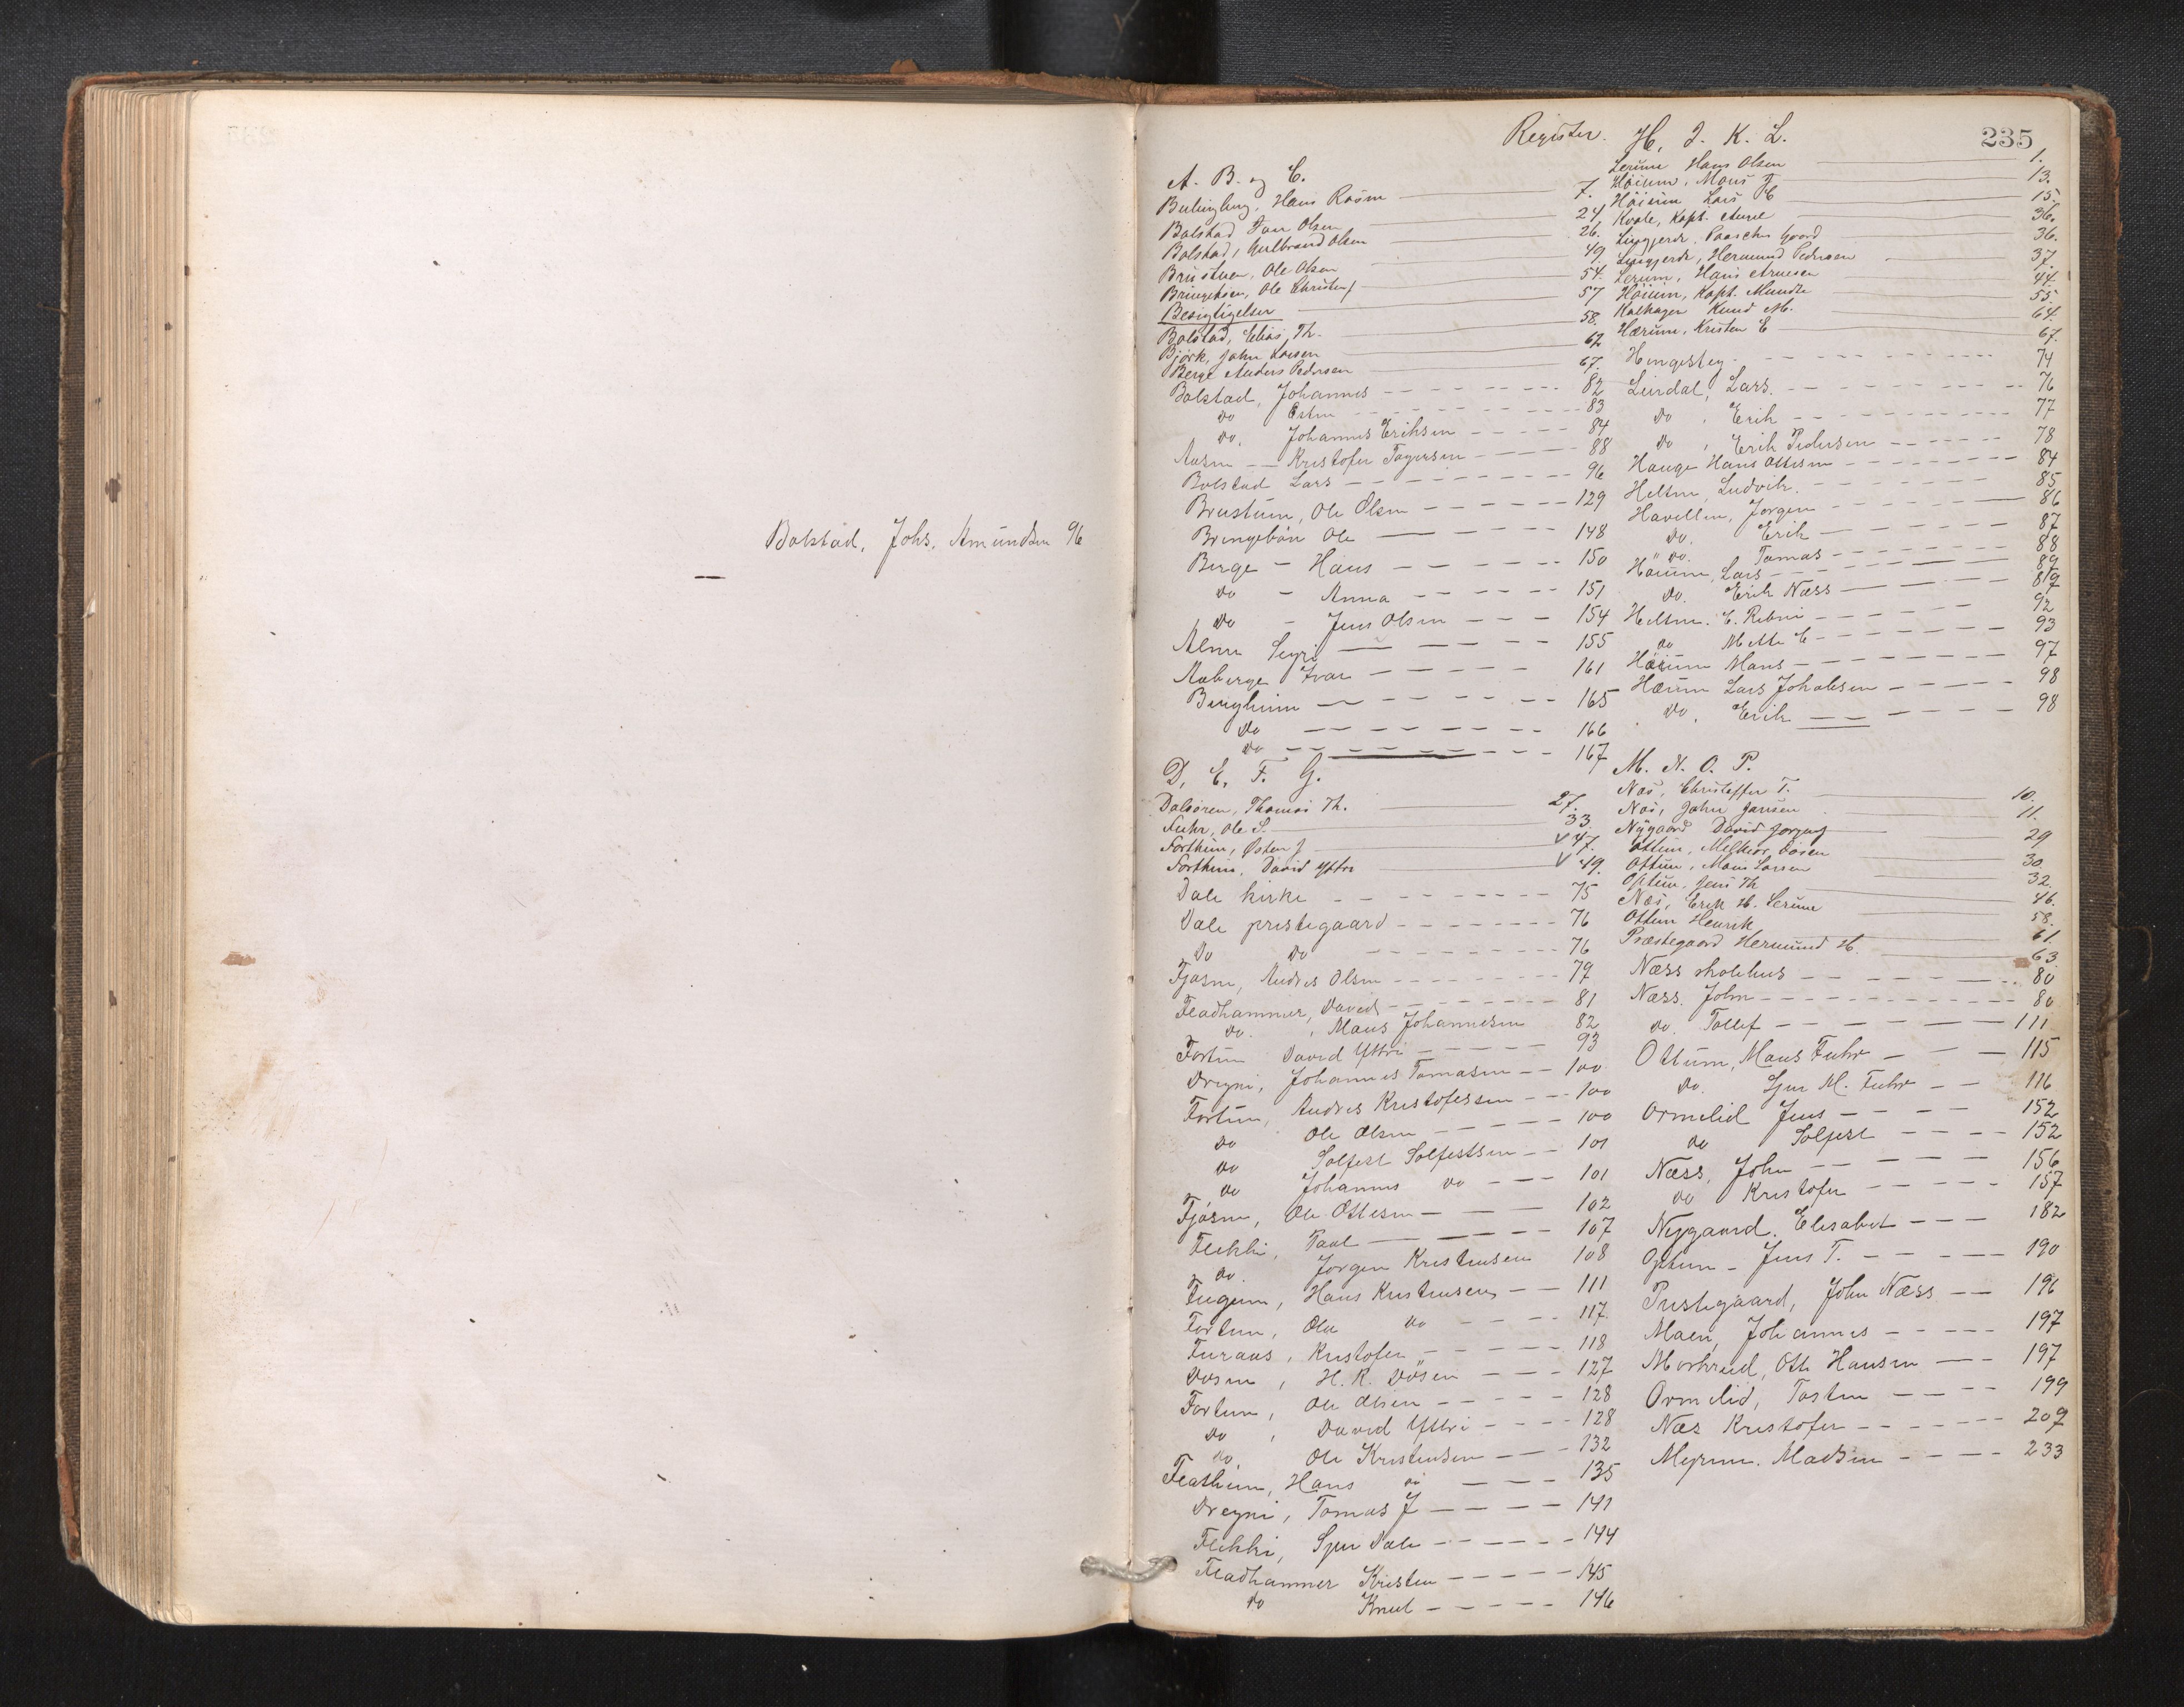 Bolstad, Johs. Amundsen 96
Register.
235
A. B. og C.
Hans Roåsen 7.
Bolstad Iver Olsen 24.
Bolstad, Gulbrand Olsen 26.
Bruståen, Ole Olsen 49.
Ole Christens. 54.
Besigtigelser 57
Bolstad, Elias Th. 58.
Bjørk, John Larsen 62
Berge Anders Pedersen 67.
Bolstad, Johannes 82
Do Esten 83
Do. Johannes Eriksen 84
Aasen Kristofer Torgersen 88
Bolstad Lars 96
Brustuen, Ole Olsen 129
Bringebön Ole 148
Berge - Hans 150
Do - Anna 151
Do - Jens Olsen 154
Alme 155
Aaberge Ivar 161
Bergheim 165
Do 166
Do 167
D. E. F. G.
Dalsøren, Thomas Th. 27.
Fuhr, Ole S. 33.
Forthun, Østen J V 47.
Forthun, David Yttri V 49.
Dale kirke 75
Dale prestegaard 76
Do Do 76
Fjøsne, Andres Olsen 79
Fladhammer, David 81
Do. , Mons Johannesen 82
Fortun David Yttri 93
Drægni, Johannes Tomasen 100
Fortun, Andres Kristofersen 100
Do Ole Olsen 100
Do Solfest Solfestsen 101
Do Johannes Do 101
Fjøsne, Ole Ottesen 102
Flekke, Paul 107
Do. Jørgen Kristensen 108
Fuglem, Hans Kristensen 111
Fortun, Ole Do 117
Furaas, Kristofer 118
Døsen, H. R. Døsen 127
Fortun, Ole Olsen 128
Do , David Yttri 128
Do, Ole Kristensen 132
Flatheim, Hans Do 135
Drægni, Tomas J 141
Flekke, Sjur Dale 144
Fladhammer Kristen 145
Do Knut 146
H. I. K. L.
Lerum Hans Olsen 1.
Høium, Mons T 13.
Høium Lars E 15.
Kvale, Kapt. 36.
Lingjerde, Paasche Gaard 36.
Lingjerde, Hermund Pedersen 37
Lerum, Hans Arnesen 44.
Høium, Kapt. Munthe 55.
Kalhagen Knud M. 64.
Hærum, Kristen E 67.
Hengesteg 74
Lirdal, Lars. 76
Do , Erik 77
Do , Erik Pedersen 78
Hauge Hans Ottesen 84
Heltne, Ludvik. 85
Havellen, Jørgen 86
Do. Erik 87
Do. Tomas 88
Høium, Lars 89
Do. Erik Næss 89
Heltne. E. Rebni 92
Do Mette E 93
Høium Mons 97
Hæum Lars 98
Do. Erik 98
M. N. O. P.
Næs, Christoffer T. 10.
Næs, John Jansen 11.
Nygaard David Jørgens 29
Ottum, Melkior Larsen 30.
Ottum, Mons Larsen 32.
Optun, Jens Th 46.
Næs, Erik H. Lerum 58.
Ottum Henrik 61.
Præstegaard Hermund H. 63
Næss skolehus 80
Næss. John 80
Do. Tollef 111
Ottum, Mons Fuhr 115
Do. Sjur M. Fuhr 116
Ormelid Jens 152
Do Solfest 152
Næss, John 156
Do Kristofer 157
Nygaard. Elisabet 182
Optun - Jens T. 190
Prestegaard, John Næss 196
Moen, Johannes 197
Morkreid, Otte Hansen 197
Ormelid, Tosten 199
Næs Kristofer 209
Myrene. Madsen 233